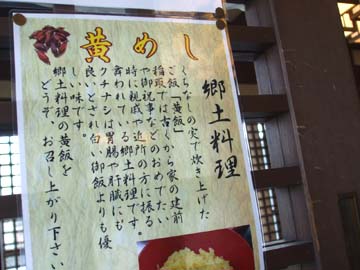 黄めし
郷土料理
くちなしの実で炊き上げた
ご飯「黄飯」
稲取では古くから家の建前
や御祝事などのおめでたい
時に親戚や近所の方に振る
舞われている郷土料理です
クチナシは胃腸や肝臓にも
良いとされ白い御飯よりも優
しい味です。
郷土料理の黄飯を
どうぞ、お召し上がり下さい